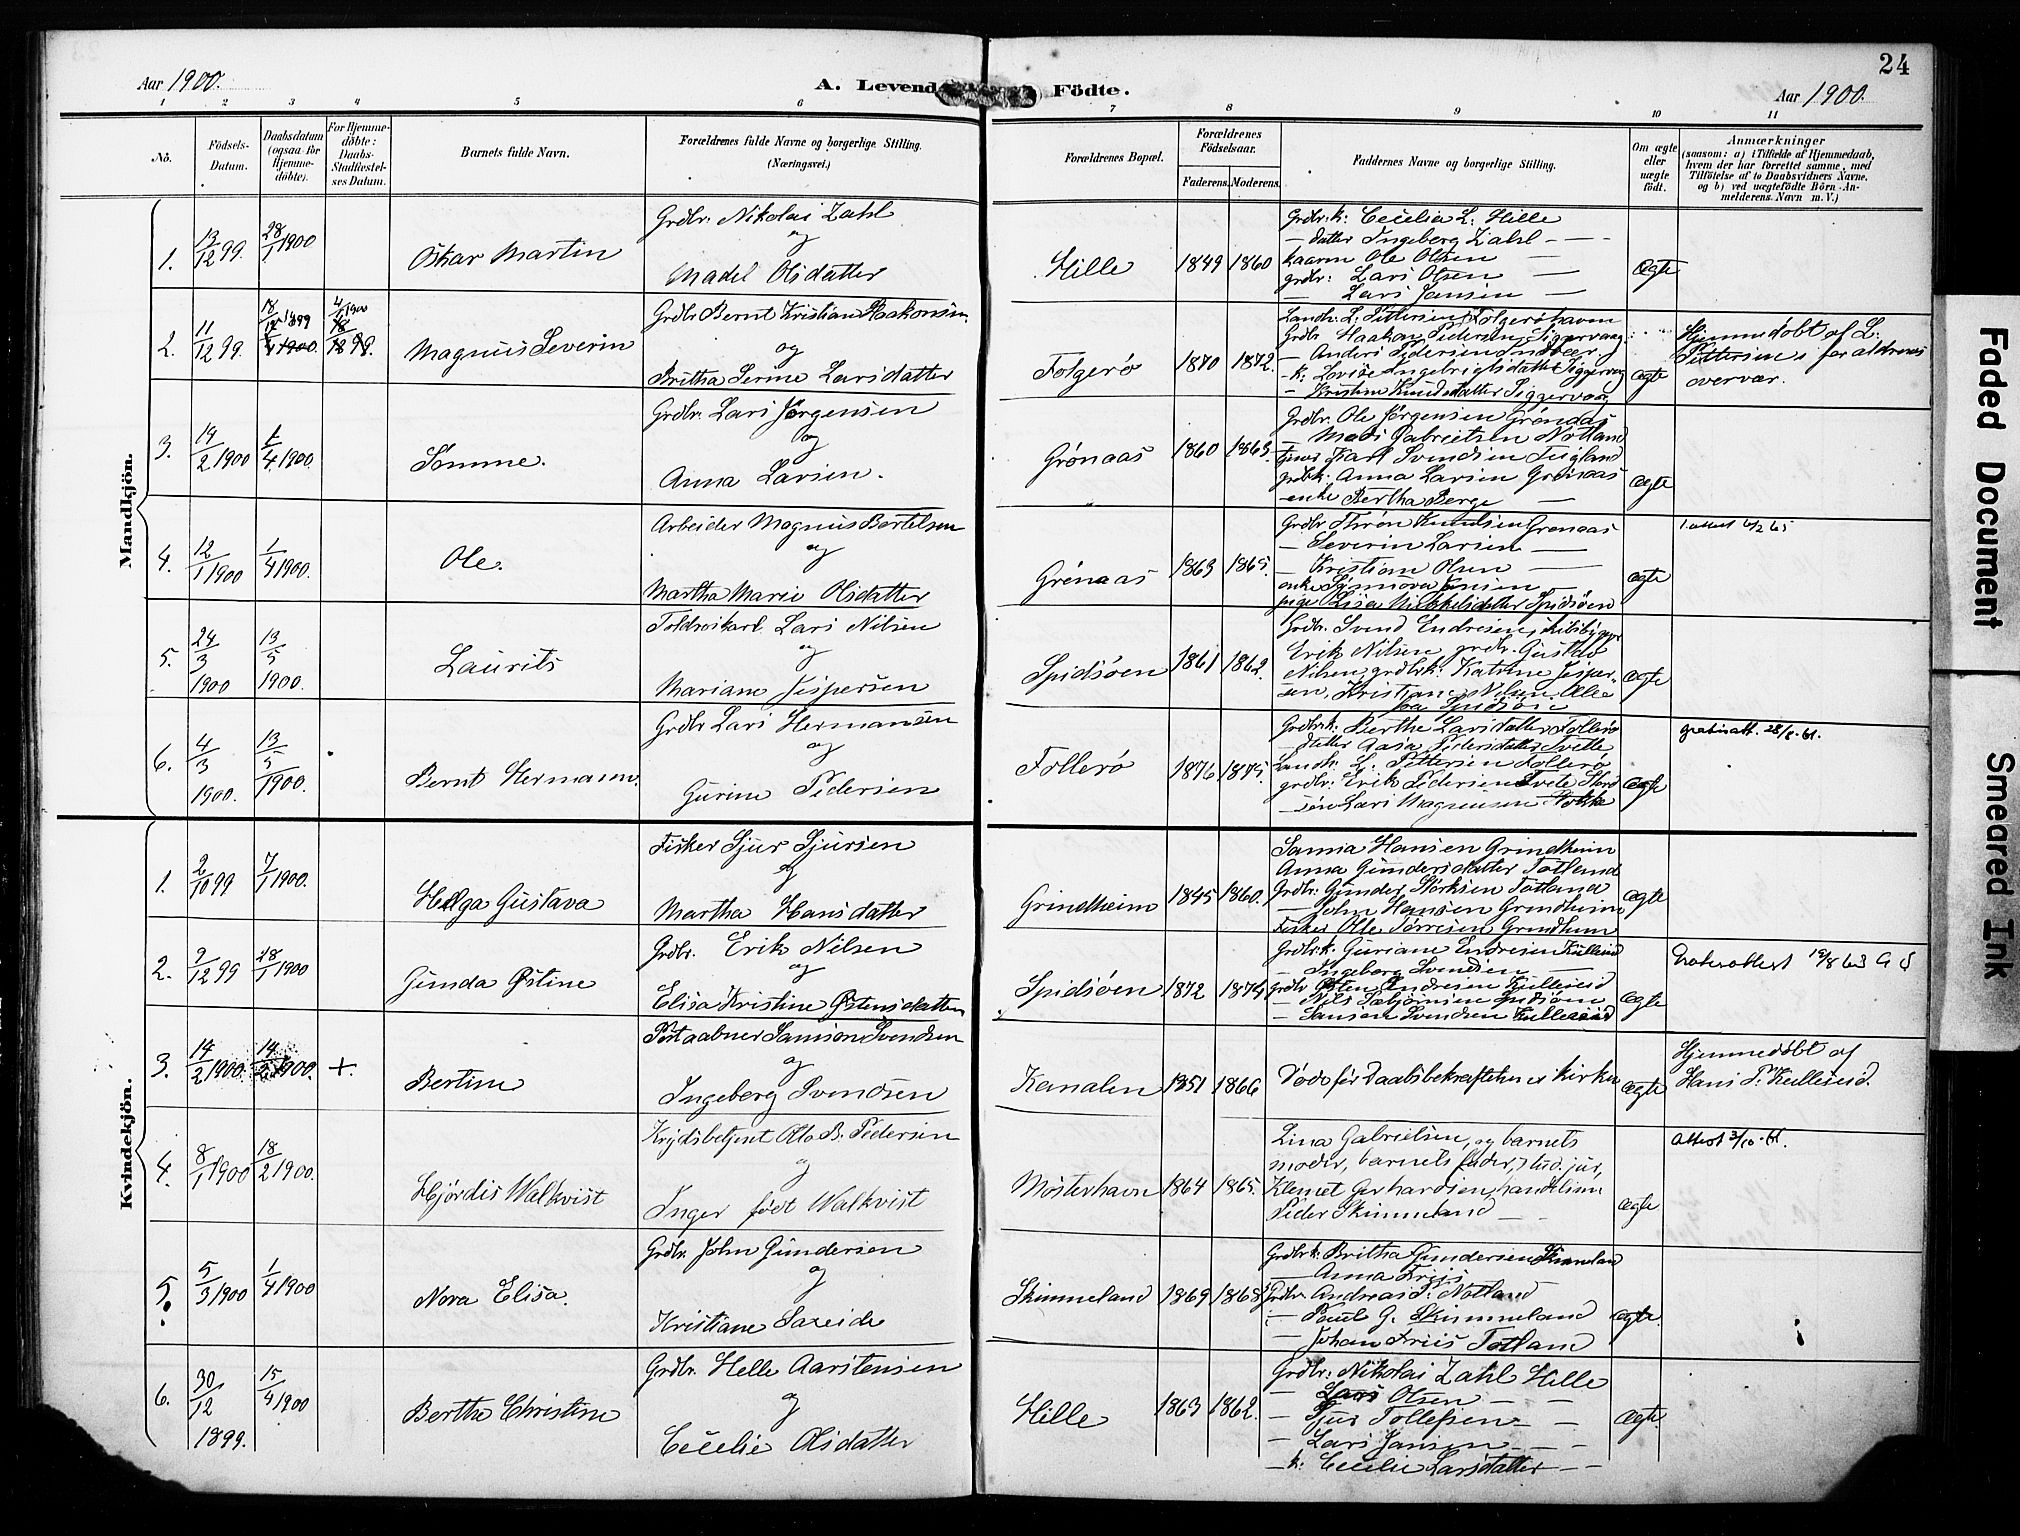 Aar 1900.
A. Levende Födte.
24
Aar 1900.
1 2 3 4 5 6 7 8 9 10 11
No.
Födsels-
Datum.
Daabsdatum
(ogsaa för
Hjemme-
döbte).
For Hjemme-
döbte:
Daabs-
Stadfæstel-
ses Datum.
Barnets fulde Navn.
Forældrenes fulde Navne og borgerlige Stilling.
(Næringsvei.)
Forældrenes Bopæl.
Forældrenes
Födselsaar.
Faderens. Moderens.
Faddernes Navne og borgerlige Stilling.
Om ægte
eller
uægte
födt.
Anmærkninger
(saasom: a) i Tilfælde af Hjemmedaab,
hvem der har forrettet samme, med
Tilföielse af to Daabsvidners Navne,
og b) ved uægtefödte Börn An-
melderens Navn m. V.)
Mandkjön.
1.
13/12 99.
28/1 1900
Oskar Martin
Grdbr. Nikolai Zahl
og
Madel Olsdatter
Hille
1849 1860
Grdbr.k: Cecilia L. Hille
— datter Ingeberg Zahl — —
kaarm Ole Olsen —
grdbr: Lars Olsen —
— Lars Jansen —
Ægte
2.
11/12 99.
18/12 1899
4/1 1900
Magnus Severin
Grdbr Bernt Kristian Haakonsen
og
Britha Serine Larsdatter
Folgerø
1870 1872.
Landh. L. Pettersen Folgerøhavn
Grdbr Haakon Pedersen Siggervaag
— Anders Pedersen
— k: Lovise Ingebrigtsdatter Siggervaag
— Kristine Knudsdatter Siggervaag
Ægte
Hjemmedøbt af L.
Pettersen i foraldrenes
overvær.
3.
19/2 1900
1/4 1900.
Sømme.
Grdbr. Lars Jørgensen
og
Anna Larsen.
Grønaas
1860 1863.
Grdbr. Ole Jørgensen Grønaas
— Mads Gabrielsen Notland
Karl Svendsen Fugland
grdbrk. Anna Larsen Grønaas
enke Bertha Berge —
Ægte
4.
12/1 1900
1/4 1900.
Ole.
Arbeider Magnus Bertelsen
og
Martha Marie Olsdatter
Grønaas
1863 1865.
Grdbr. Thrøn Knudsen Grønaas
— Severin Larsen —
— Kristian Olsen —
enke Synnøva Jensen —
pige Lisa Mikkelsdatter Spidsøen
Ægte
1. attest 6/2 65
5.
24/3 1900
13/5 1900.
Laurits
Toldroskarl. Lars Nilsen
og
Mariane Jespersen
Spidsøen
1861 1862.
Grdbr. Svend Endresen, skibsbygger
Erik Nilsen, grdbr. Gustav
Nilsen, grdbrk: Katrine Jesper-
sen, Kristiane Nilsen Alle
fra Spidsøen
Ægte
6.
4/3 1900.
13/5 1900.
Bernt Hermann.
Grdbr Lars Hermansen
og
Gurine Pedersen
Follerø
1876 1875.
Grdbrk. Berthe Larsdatter Follerø
— datter Aasa Pedersdatter Tveite
Landh. L. Pettersen Follerø
grdbr: Erik Pedersen Tveite Stord
— søn Lars Magnussen
Ægte
gratisatt. 28/8-61.
Kvindekjön.
1.
2/10 99
7/1 1900.
Helga Gustava
Fisker Sjur Sjursen
og
Martha Hansdatter
Grindheim
1845 1860.
Sanna Hansen Grindheim
Anna Gundersdatter Totland
Grdbr: Gunder Størksen Totland
— John Hansen Grindheim
Fisker Ole Tørresen Grindheim
Ægte
2.
9/12 99
28/1 1900
Gunda Østine
Grdbr. Erik Nilsen
og
Elisa Kristine Østensdatter
Spidsøen
1872 1874
Grdbr.k. Guriane Endresen Kulleseid
— Ingeberg Svendsen —
grdbr Østen Endresen Kulleseid
— Nils Torbjørnsen Spidsøen
— Samson Svendsen Kulleseid
Ægte
19/8 63 A S
3.
14/2 1900.
14/2 1900.
+.
Bertine
Postaabner Samson Svendsen
og
Ingeberg Svendsen
Kanalen
1851 1866
Døde før Daabsbekræftelsen i kirken
Ægte
Hjemmedøbt af
Hans P. Kulleseid.
4.
8/1 1900
18/2 1900.
Hjørdis Walkvist
Krydsbetjent Olo B. Pedersen
og
Inger født Walkvist
Mosterhavn
1864 1865.
Lina Gabrielsen, og barnets
moder, barnets fader, stud. jur,
Klemet Gerhardsen, handelsm
Peder Skimmeland —
Ægte
Attest 3/10-61.
5.
5/3 1900
1/4 1900
Nora Elisa.
Grdbr. John Gundersen
og
Kristiane Sareide
Skimmeland
1869 1868
Grdbrk. Britha Gundersen Skimmeland
— Anna Friis
Grdbr. Andreas P. Notland
— Poul G. Skimmeland
— Johan Friis Totland
Ægte.
6.
30/12 1899.
15/4 1900
Berthe Christine
Grdbr. Helle Aarstensen
og
Cecelie Olsdatter
Hille
1863 1862.
Grdbr: Nikolai Zahl Hille
— Lars Olsen — —
— Sjur Tollefsen — —
— Lars Jansen — —
— k: Cecilie Larsdatter — —
Ægte.
Faded Document
Smeared Ink